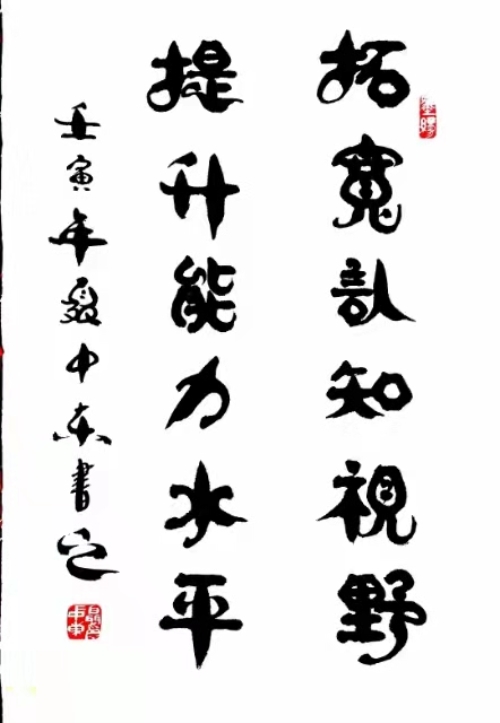 拓寬認知視野
提升能力水平
壬寅年夏中东書之